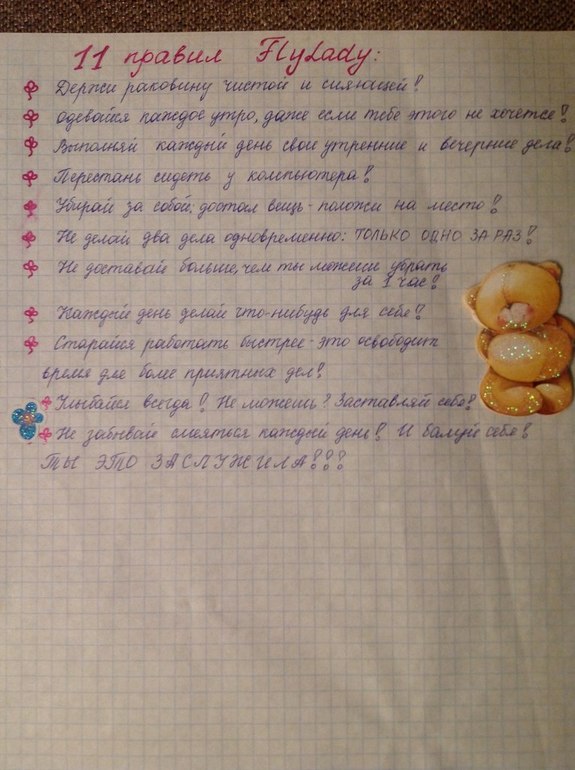 11 правил FlyLady:
Держи раковину чистой и сияющей!
Одевайся каждое утро, даже если тебе этого не хочется!
Выполняй каждый день свои утренние и вечерние дела!
Перестань сидеть у компьютера!
Убирай за собой: достал вещь - положи на место!
Не делай два дела одновременно: ТОЛЬКО ОДНО ЗА РАЗ!
Не доставай больше, чем ты можешь убрать
за 1 час!
Каждый день делай что-нибудь для себя!
Старайся работать быстрее - это освободит
время для более приятных дел!
Улыбайся всегда! Не можешь? Заставляй себя!
Не забывай смеяться каждый день! И балуй себя!
ТЫ ЭТО ЗАСЛУЖИЛА!!!